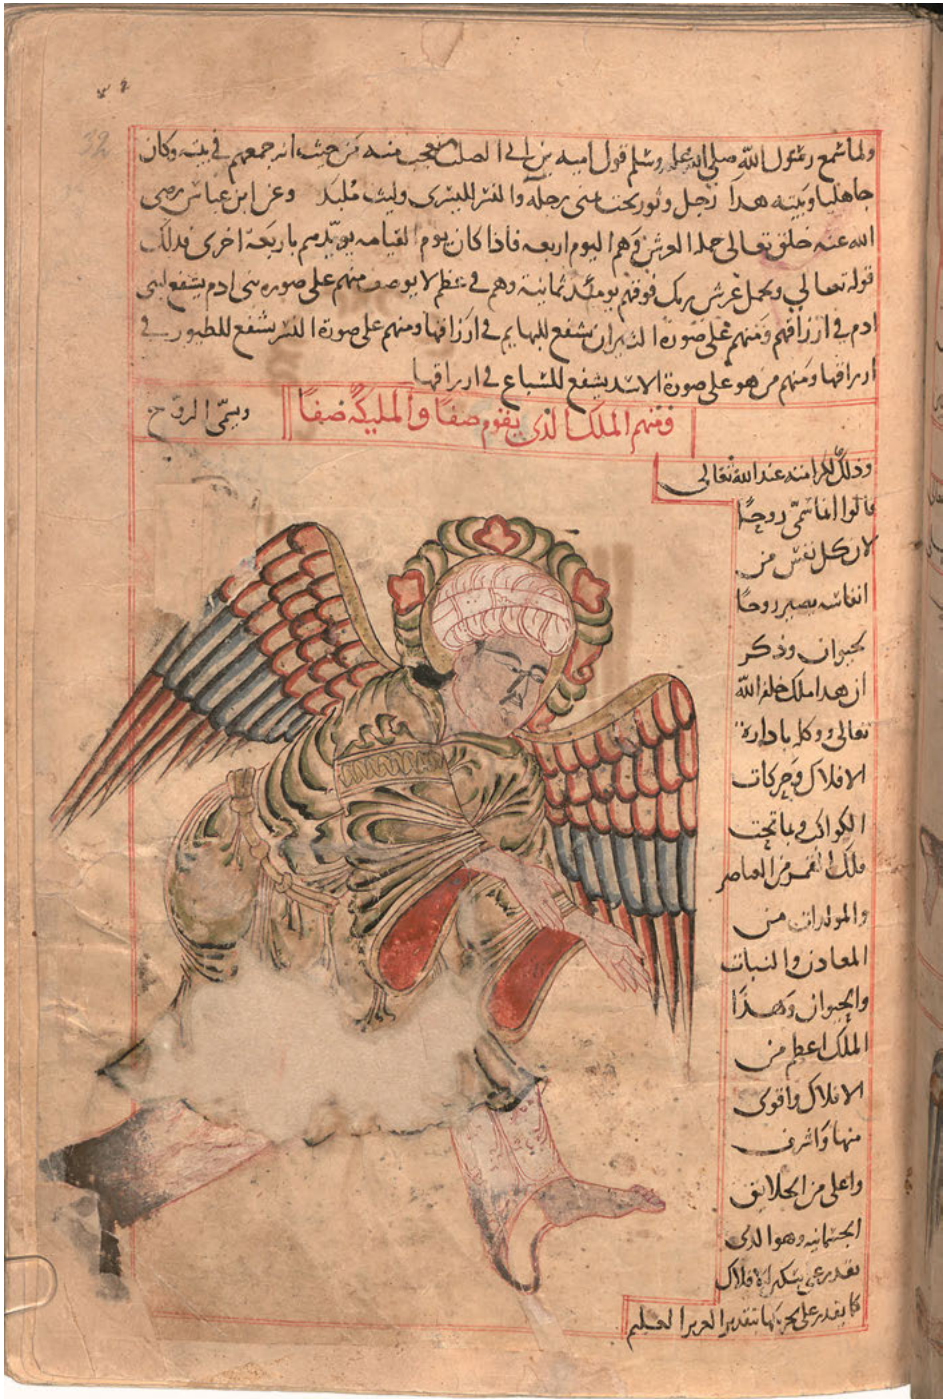 ولما سمع رسول الله صلى الله عليه وسلم قول اميه بن ابي الصلت تعجب منه من حيث انه جمعهم في بيته وكان
جاهليا وبيته هذا رجل وثور تحت يمنى رجله والنسر لليسرى وليث ملبد وعن ابن عباس رضي
الله عنه خلق تعالى حملة العرش وهم اليوم اربعه فاذا كان يوم القيامه يويدهم باربعة اخرى فذلك
قوله تعالي ويحمل عرش ربك فوقهم يومئذ ثمانية وهم في عظم لا يوصف منهم على صوره بني ادم يشفع لبني
ادم في ارزاقهم ومنهم على صورة الثيران يشفع للبهايم في ارزاقها ومنهم على صورة النسر يشفع للطيور في
ارزاقها ومنهم من هو على صورة الاسد يشفع للسباع في ارزاقها
فمنهم الملك الذي يقوم صفا والمليكة صفا ويسمى الروح
وذلك لكرامته عند الله تعالى
قالوا انما سمي روحا
لان كل نفس من
انفاسه يصير روحا
لحيوان وذكر
ان هذا ملك خلقه الله
تعالى ووكله بادارة
الافلاك وحركات
الكواكب وما تحت
فلك القمر من العناصر
والمولدات من
المعادن والنبات
والحيوان وهذا
الملك اعظم من
الافلاك واقوى
منها واشرف
واعلى من الخلايق
الجسمانيه وهو الذي
يقدر على تسكين الافلاك
كما يقدر على تحريكها بتقدير العزيز العليم